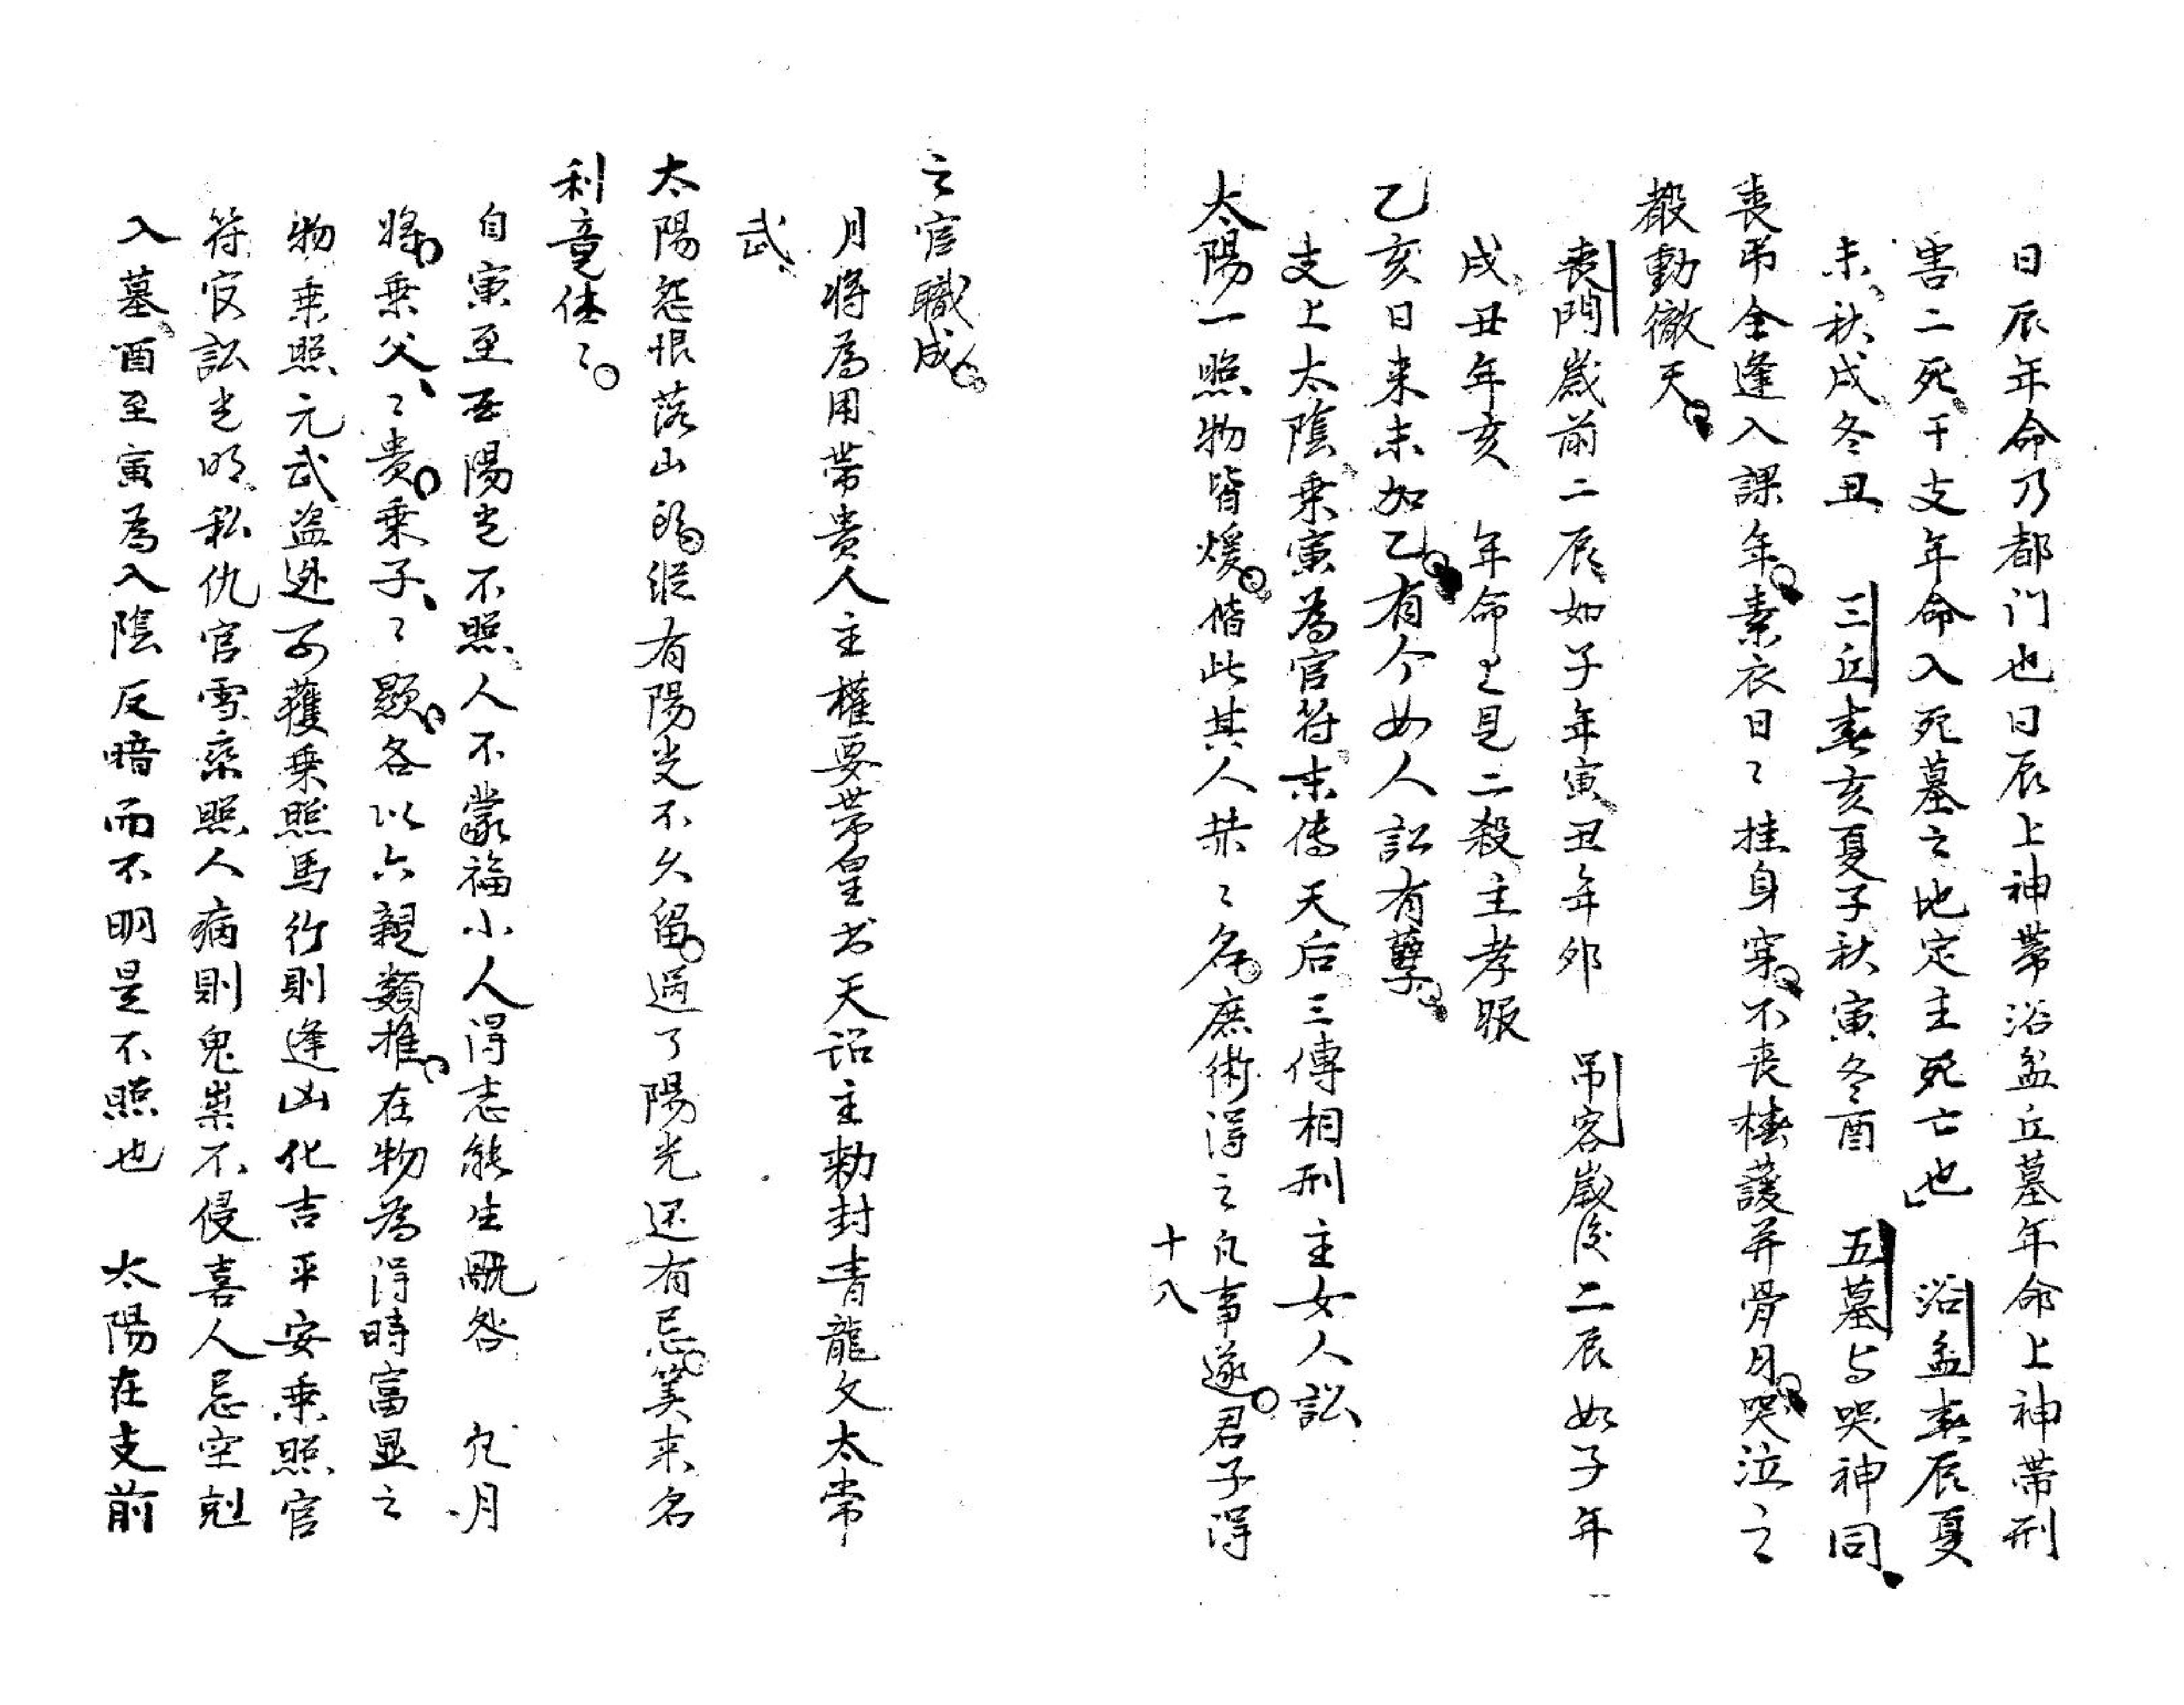 日辰年命乃都门也日辰上神帶浴盆丘墓年命上神帶刑
害二死干支年命入死墓之地定主死亡也　浴盆春辰夏
未秋戌冬丑　三丘春亥夏子秋寅冬酉　五墓与哭神同
喪吊全逢入課年素衣日〻挂身穿不喪椿萱并骨月哭泣之
聲動徹天
喪門歲前二辰如子年寅丑年卯　吊客歲後二辰如子年
戌丑年亥　年命上見二殺主孝服
乙亥日来未加乙有个女人訟有孽
支上太陰乘寅為官符末傳天后三傳相刑主女人訟
太陽一照物皆煖偕此其人赫〻名庶術得之凡事遂君子得
十八
之官職成
月將為用帶貴人主權要帶皇书天詔主勅封青龍文太常
武
太陽怨恨落山頭縱有陽光不久留過了陽光还有忌笑来名
利竟休〻
自寅至酉陽光不照人不蒙福小人得志能生戝咎　凡月
將乘父〻貴乘子〻顯各以六親類推在物為得時富显之
物乘照元武盜逃可獲乘照馬行則逢凶化吉平安乘照官
符官訟光明私仇官雪乘照人病則鬼祟不侵喜人忌空尅
入墓酉至寅為入陰反暗而不明是不照也　太陽在支前